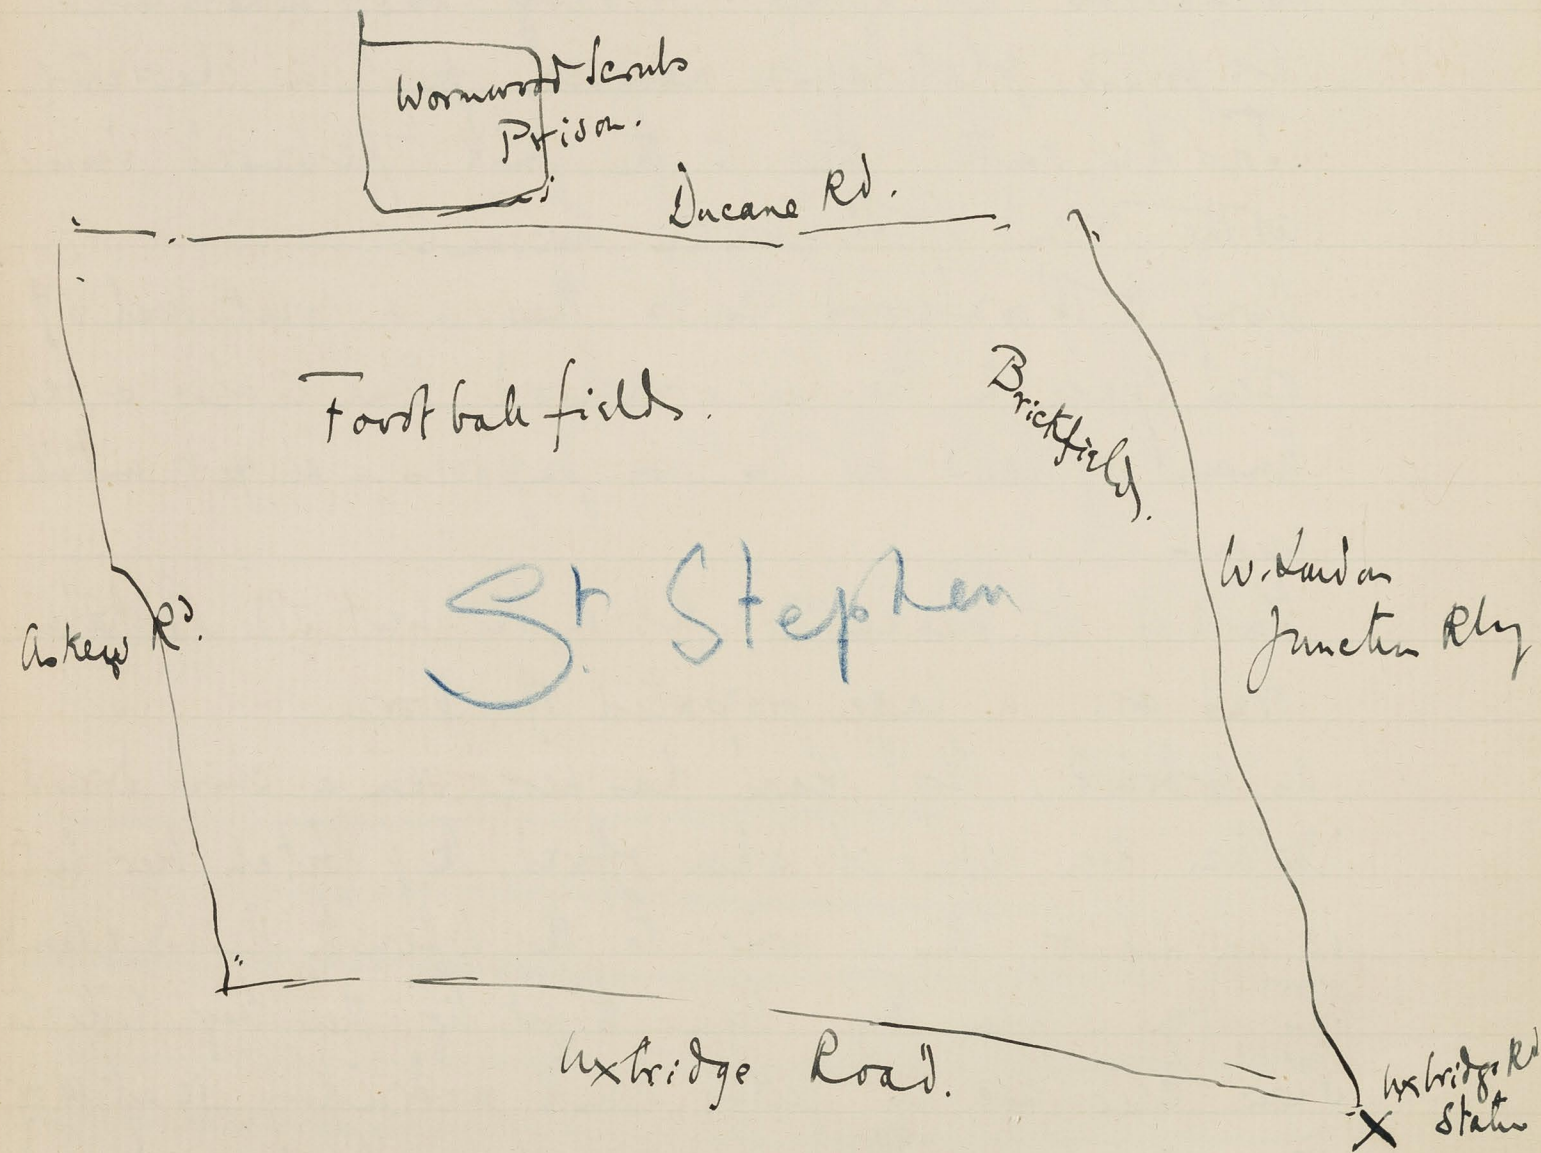 Wormwood Scrubs
Prison.
Ducane Rd.
Football fields.
Brickfields.
St. Stephen
W. London
Junction Rly
Askew Rd.
Uxbridge Road.
Uxbridge Rd
Station
X